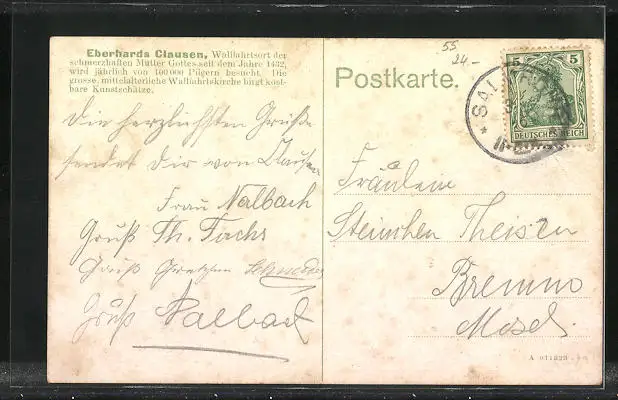 Eberhards Clausen, Wallfahrtsort der
schmerzhaften Mutter Gottes seit dem Jahre 1432,
wird jährlich von 100 000 Pilgern besucht. Die
grosse, mittelalterliche Wallfahrtskirche birgt kost-
bare Kunstschätze.
Postkarte.
55
24.-
5 5
DEUTSCHES REICH
SAL
Die herzlichsten Grüße
sendet Dir von Clausen
Frau Nalbach
Gruß Th. Fachs
Gruß Gretchen
Gruß Nalbach
Fräulein
Stinchen Theisen
Bremm
Mosel.
A 011323